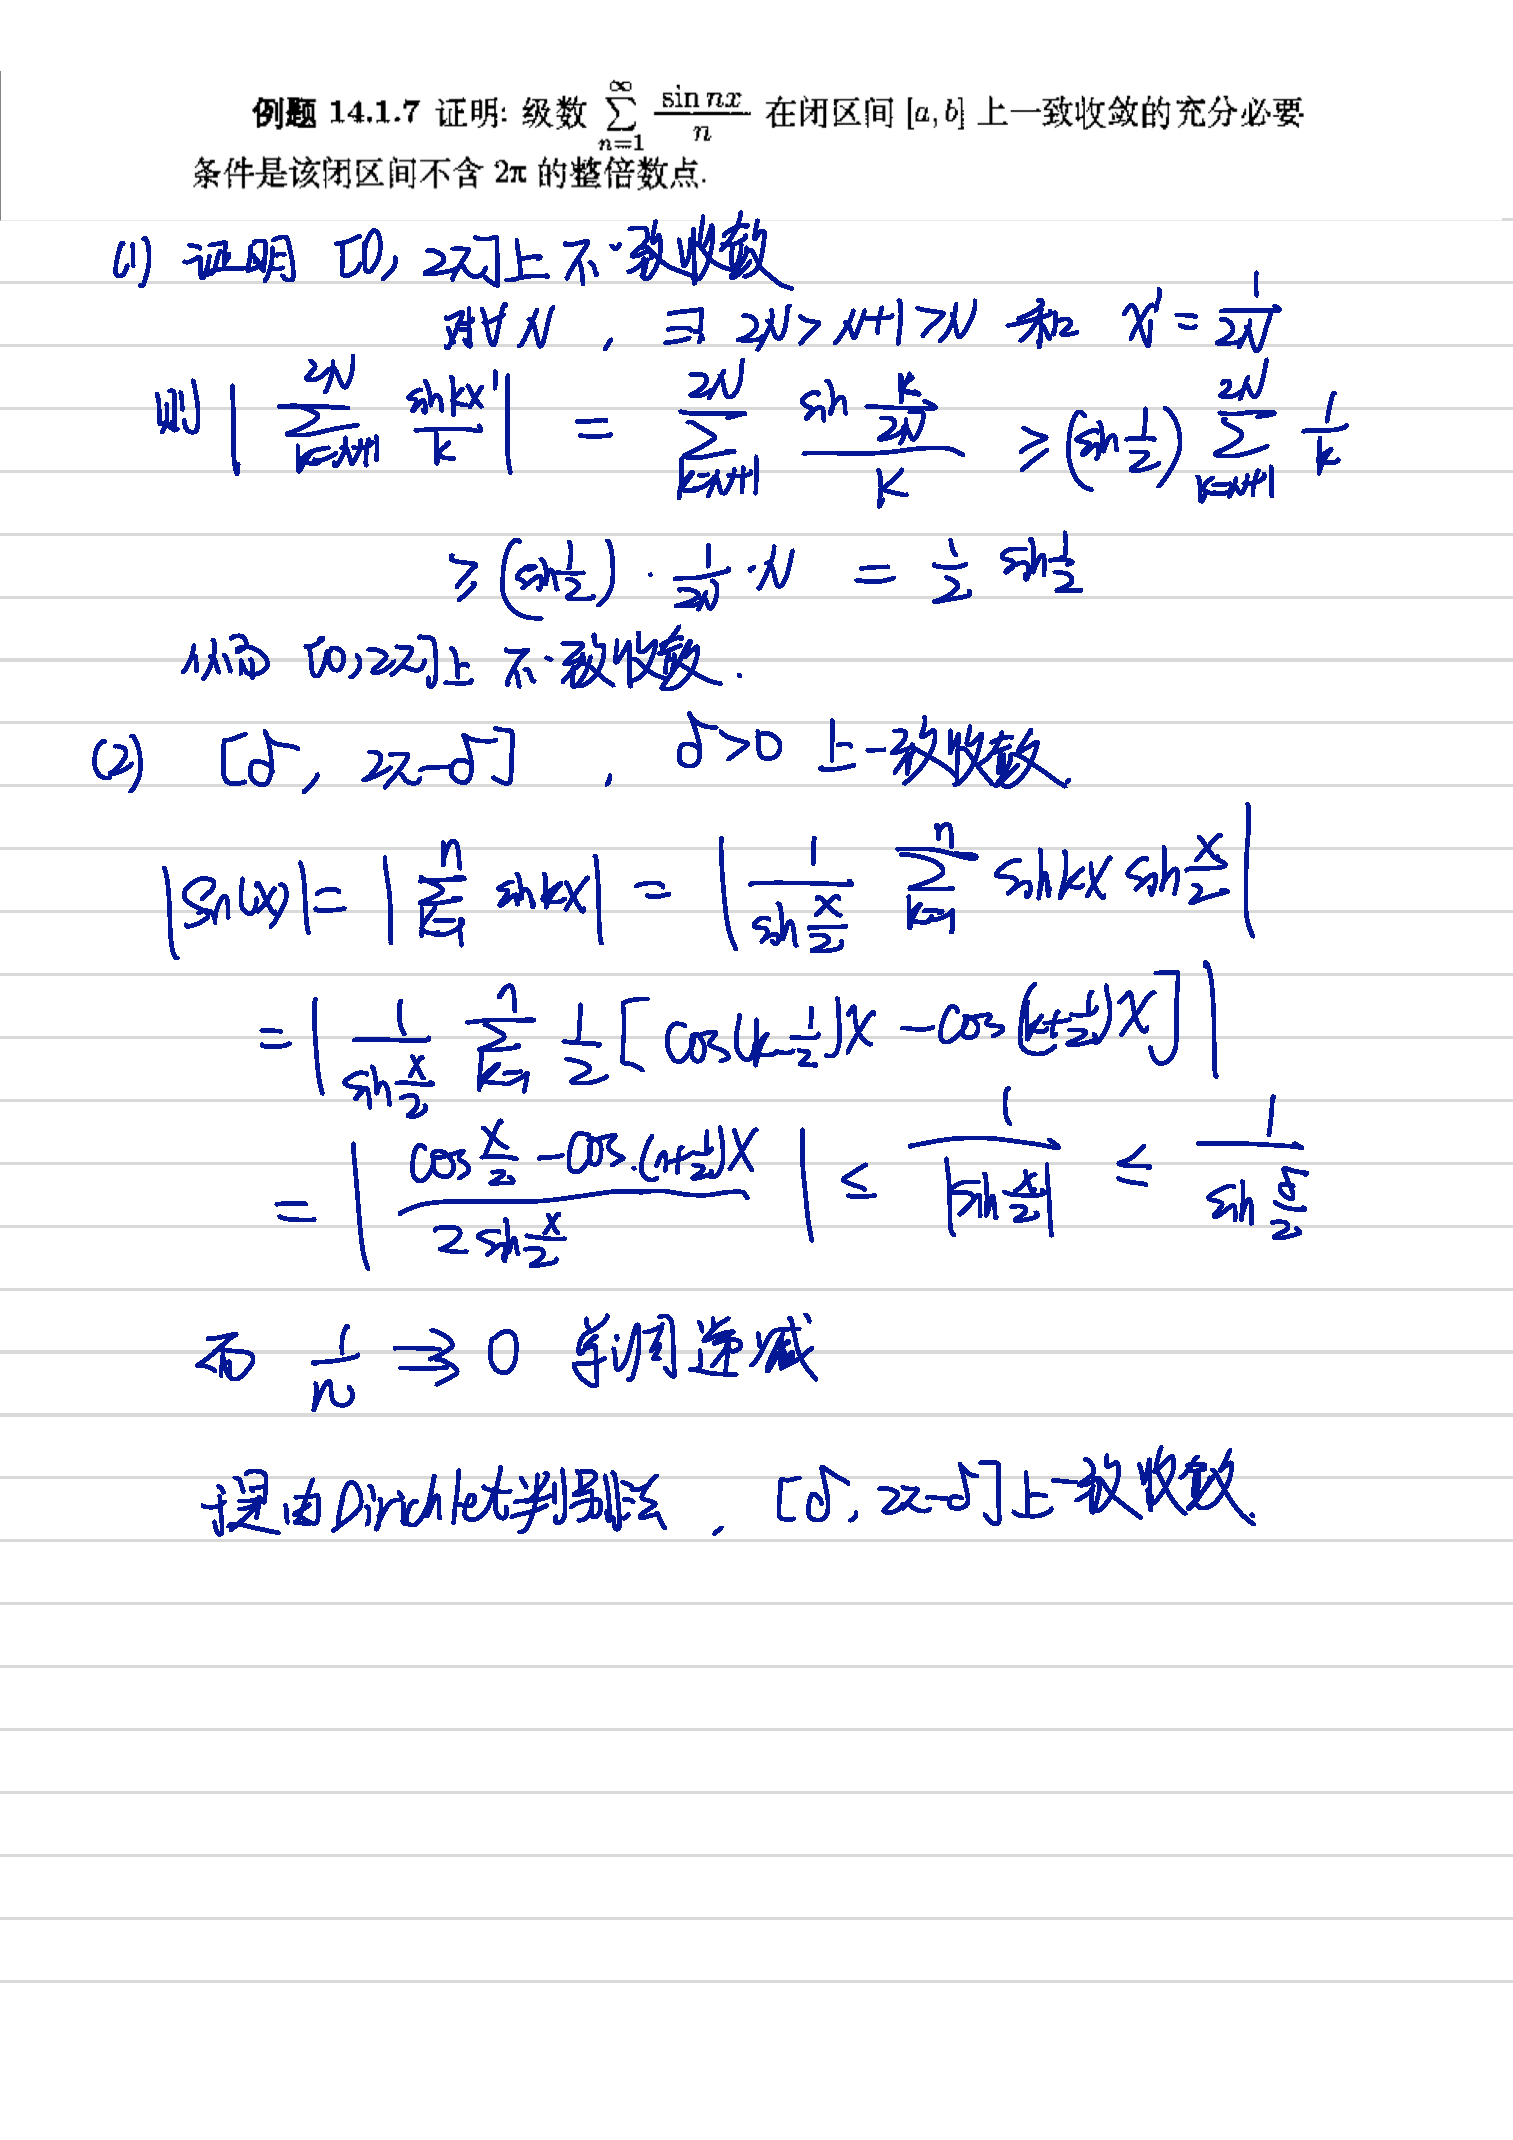 例题 14.1.7 证明: 级数 $\sum_{n=1}^{\infty} \frac{\sin nx}{n}$ 在闭区间 [a, b] 上一致收敛的充分必要
条件是该闭区间不含 2π 的整倍数点.
(1) 证明 [0, 2π]上不一致收敛
对∀N , ∃ 2N > N+1 > N 和 $x' = \frac{1}{2N}$
则 $\left| \sum_{k=N+1}^{2N} \frac{\sin kx'}{k} \right| = \sum_{k=N+1}^{2N} \frac{\sin \frac{k}{2N}}{k} \geq (\sin \frac{1}{2}) \sum_{k=N+1}^{2N} \frac{1}{k}$
$\geq (\sin \frac{1}{2}) \cdot \frac{1}{2N} \cdot N = \frac{1}{2} \sin \frac{1}{2}$
从而 [0, 2π]上 不一致收敛.
(2) [δ, 2π-δ] , δ>0 上一致收敛.
$|S_n(x)| = \left| \sum_{k=1}^{n} \sin kx \right| = \left| \frac{1}{\sin \frac{x}{2}} \sum_{k=1}^{n} \sin kx \sin \frac{x}{2} \right|$
$= \left| \frac{1}{\sin \frac{x}{2}} \sum_{k=1}^{n} \frac{1}{2} [\cos(k-\frac{1}{2})x - \cos(k+\frac{1}{2})x] \right|$
$= \left| \frac{\cos \frac{x}{2} - \cos(n+\frac{1}{2})x}{2 \sin \frac{x}{2}} \right| \leq \frac{1}{|\sin \frac{x}{2}|} \leq \frac{1}{\sin \frac{δ}{2}}$
而 $\frac{1}{n}$ ⇉ 0 单调递减
于是由Dirichlet判别法 , [δ, 2π-δ]上一致收敛.